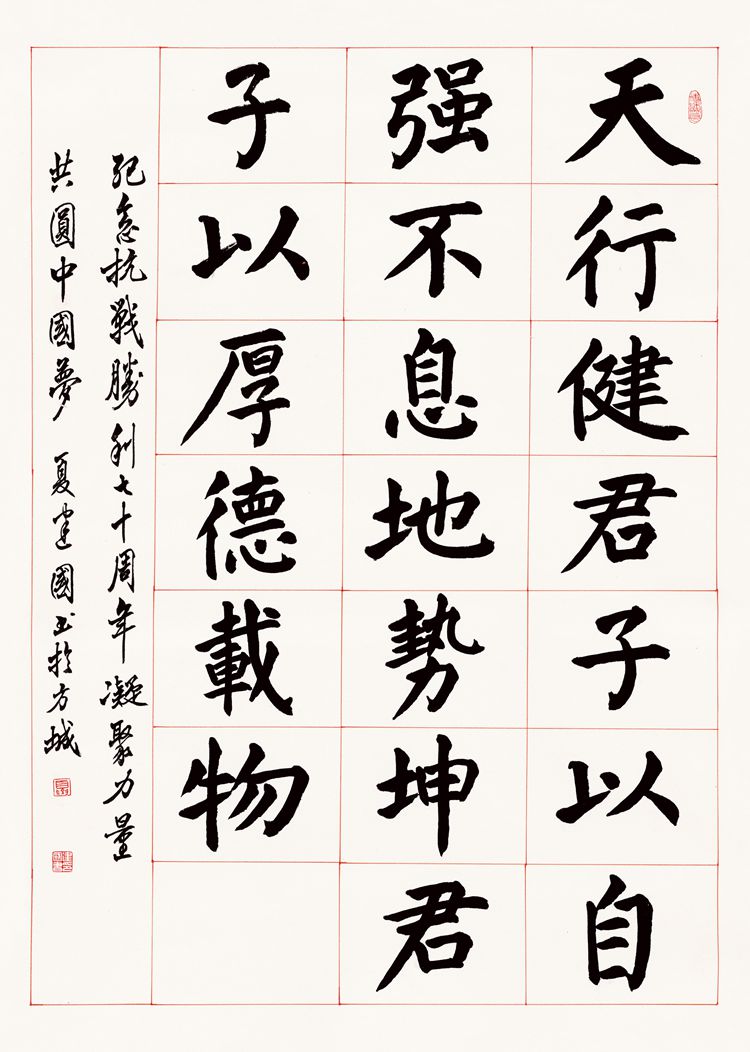 天行健君子以自
强不息地勢坤君
子以厚德載物
紀念抗戰勝利七十周年凝聚力量
共圓中國夢 夏建國书於方城